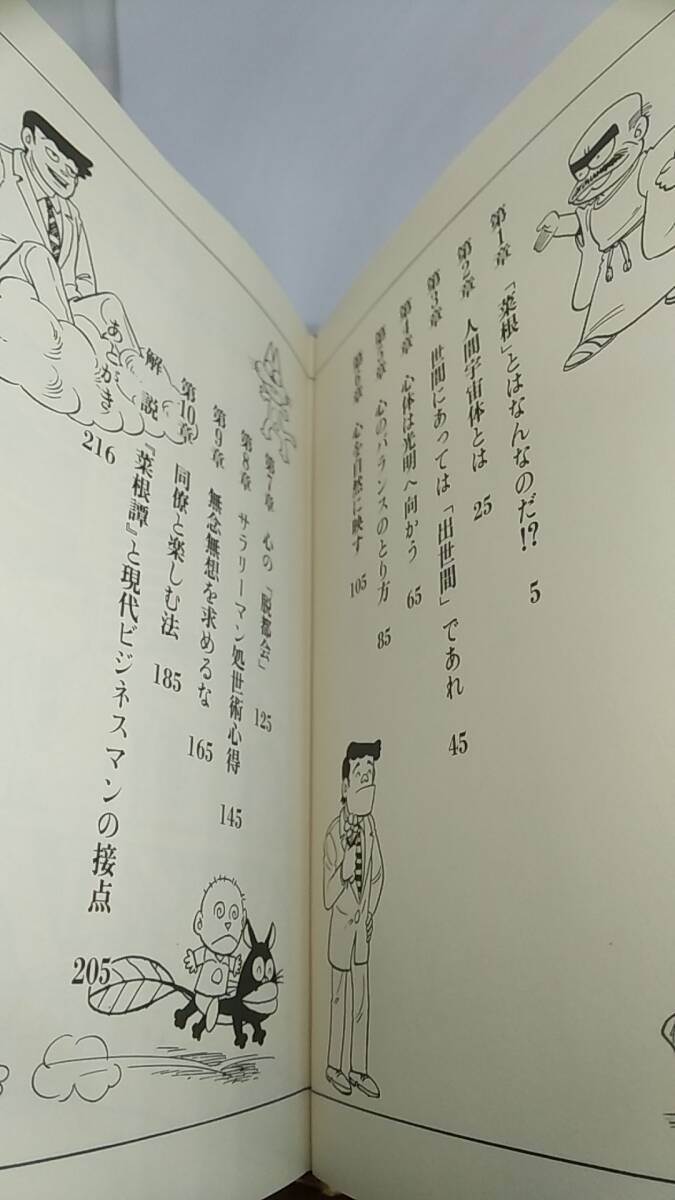 第1章 「菜根」とはなんなのだ!? 5
第2章 人間宇宙体とは 25
第3章 世間にあっては「出世間」であれ 45
第4章 心体は光明へ向かう 65
第5章 心のバランスのとり方 85
第6章 心を自然に映す 105
第7章 心の「脱都会」 125
第8章 サラリーマン処世術心得 145
第9章 無念無想を求めるな 165
第10章 同僚と楽しむ法 185
解説 『菜根譚』と現代ビジネスマンの接点 205
あとがき 216